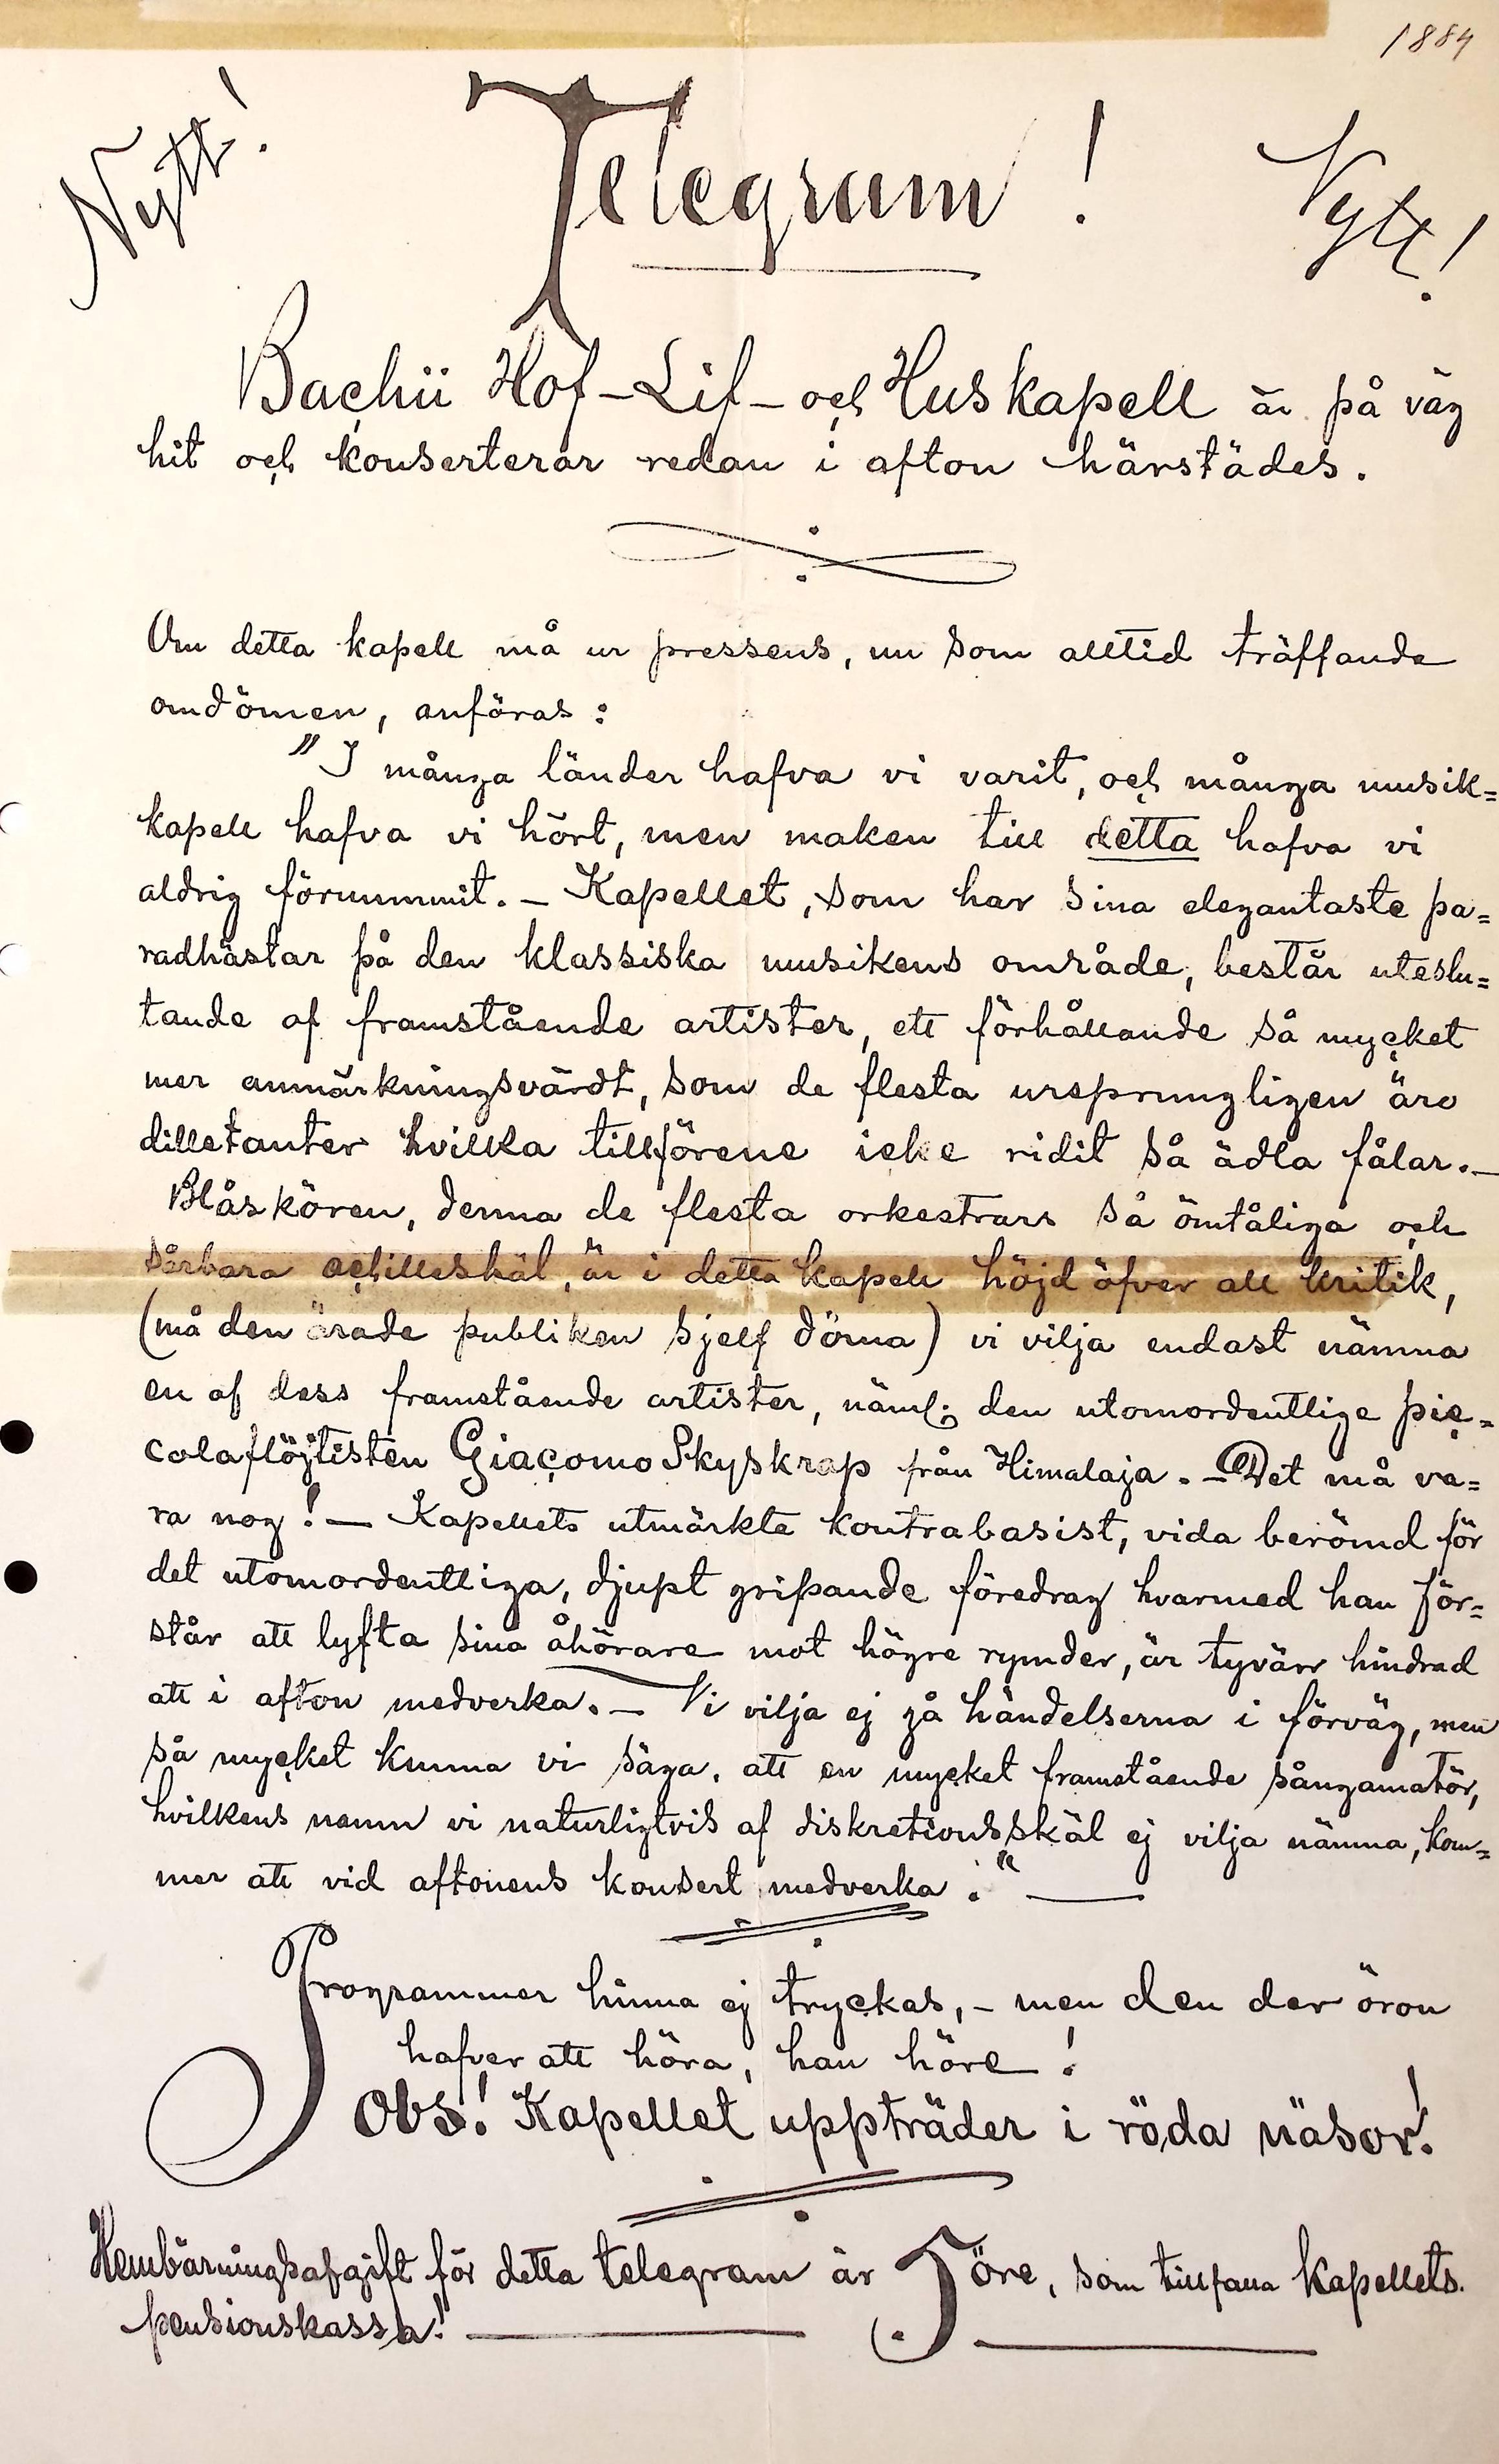 1884
Nytt!
Telegram!
Nytt!
Bachii Hof-Lif- och Huskapell är på väg
hit och konserterar redan i afton härstädes.
Om detta kapell må ur pressens, nu som alltid träffande
omdömen, anföras:
"I många länder hafva vi varit, och många musik=
kapell hafva vi hört, men maken till detta hafva vi
aldrig förnummit. – Kapellet, som har sina elegantaste pa=
radhästar på den klassiska musikens område, består uteslu=
tande af framstående artister, ett förhållande så mycket
mer anmärkningsvärdt, som de flesta ursprungligen äro
dilletanter hvilka tillförene icke ridit så ädla fålar. –
Blåskören, denna de flesta orkestrars så ömtåliga och
sårbara achilleshäl, är i detta kapell höjd öfver all kritik,
(må den ärade publiken sjelf döma) vi vilja endast nämna
en af dess framstående artister, näml. den utomordentlige pic=
colaflöjtisten Giacomo Skyskrap från Himalaja. – Det må va=
ra nog! – Kapellets utmärkte kontrabasist, vida berömd för
det utomordentliga, djupt gripande föredrag hvarmed han för=
står att lyfta sina åhörare mot högre rymder, är tyvärr hindrad
att i afton medverka. – Vi vilja ej gå händelserna i förväg, men
så mycket kunna vi säga, att en mycket framstående sångamatör,
hvilkens namn vi naturligtvis af diskretionsskäl ej vilja nämna, kom=
mer att vid aftonens konsert medverka." —
Programmer hinna ej tryckas, – men den der öron
hafver att höra, han höre!
Obs! Kapellet uppträder i röda näsor!
Hembärningsafgift för detta telegram är 5 öre, som tillfalla kapellets
pensionskassa!